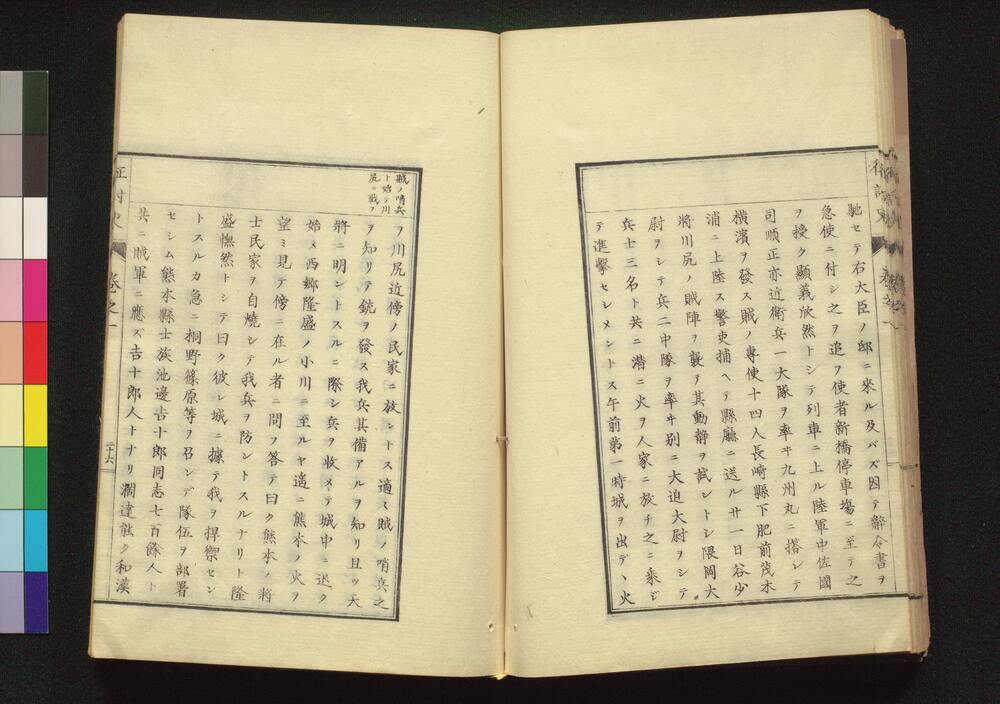 馳セテ右大臣ノ邸ニ來ル及バズ因テ辭令書ヲ
急使ニ付シ之ヲ追フ使者新橋停車塲ニ至テ之
ヲ授ク顯義欣然トシテ列車ニ上ル陸軍中佐國
司順正亦近衞兵一大隊ヲ率ヰ九州丸ニ搭シテ
横濱ヲ發ス賊ノ專使十四人長崎縣下肥前茂木
浦ニ上陸ス警吏捕ヘテ縣廳ニ送ル廿一日谷少
將川尻ノ賊陣ヲ襲テ其動靜ヲ試ントシ隈岡大
尉ヲシテ兵二中隊ヲ率ヰ別ニ大迫大尉ヲシテ
兵士三名ト共ニ潜ニ火ヲ人家ニ放チ之ニ乘ジ
テ進擊セシメントス午前第一時城ヲ出デヽ火
賊ノ哨兵
ト始テ川
尻ニ戰フ
ヲ川尻近傍ノ民家ニ放ントス適ス賊ノ哨兵之
ヲ知リテ銃ヲ發ス我兵其備アルヲ知リ且ツ天
將ニ明ントスルニ際シ兵ヲ收メテ城中ニ退ク
始メ西鄕隆盛ノ小川ニ至ルヤ遙ニ熊本ノ火ヲ
望ミ見テ傍ニ在ル者ニ問フ答テ曰ク熊本ノ將
士民家ヲ自燒シテ我兵ヲ防ントスルナリト隆
盛憮然トシテ曰ク彼レ城ニ據テ我ヲ捍禦セン
トスルカ急ニ桐野篠原等ヲ召ンデ隊伍ヲ部署
セシム熊本縣士族池邊吉十郎同志七百餘人ト
共ニ賊軍ニ應ズ吉十郎人トナリ濶達能ク和漢
卷之一
二十六